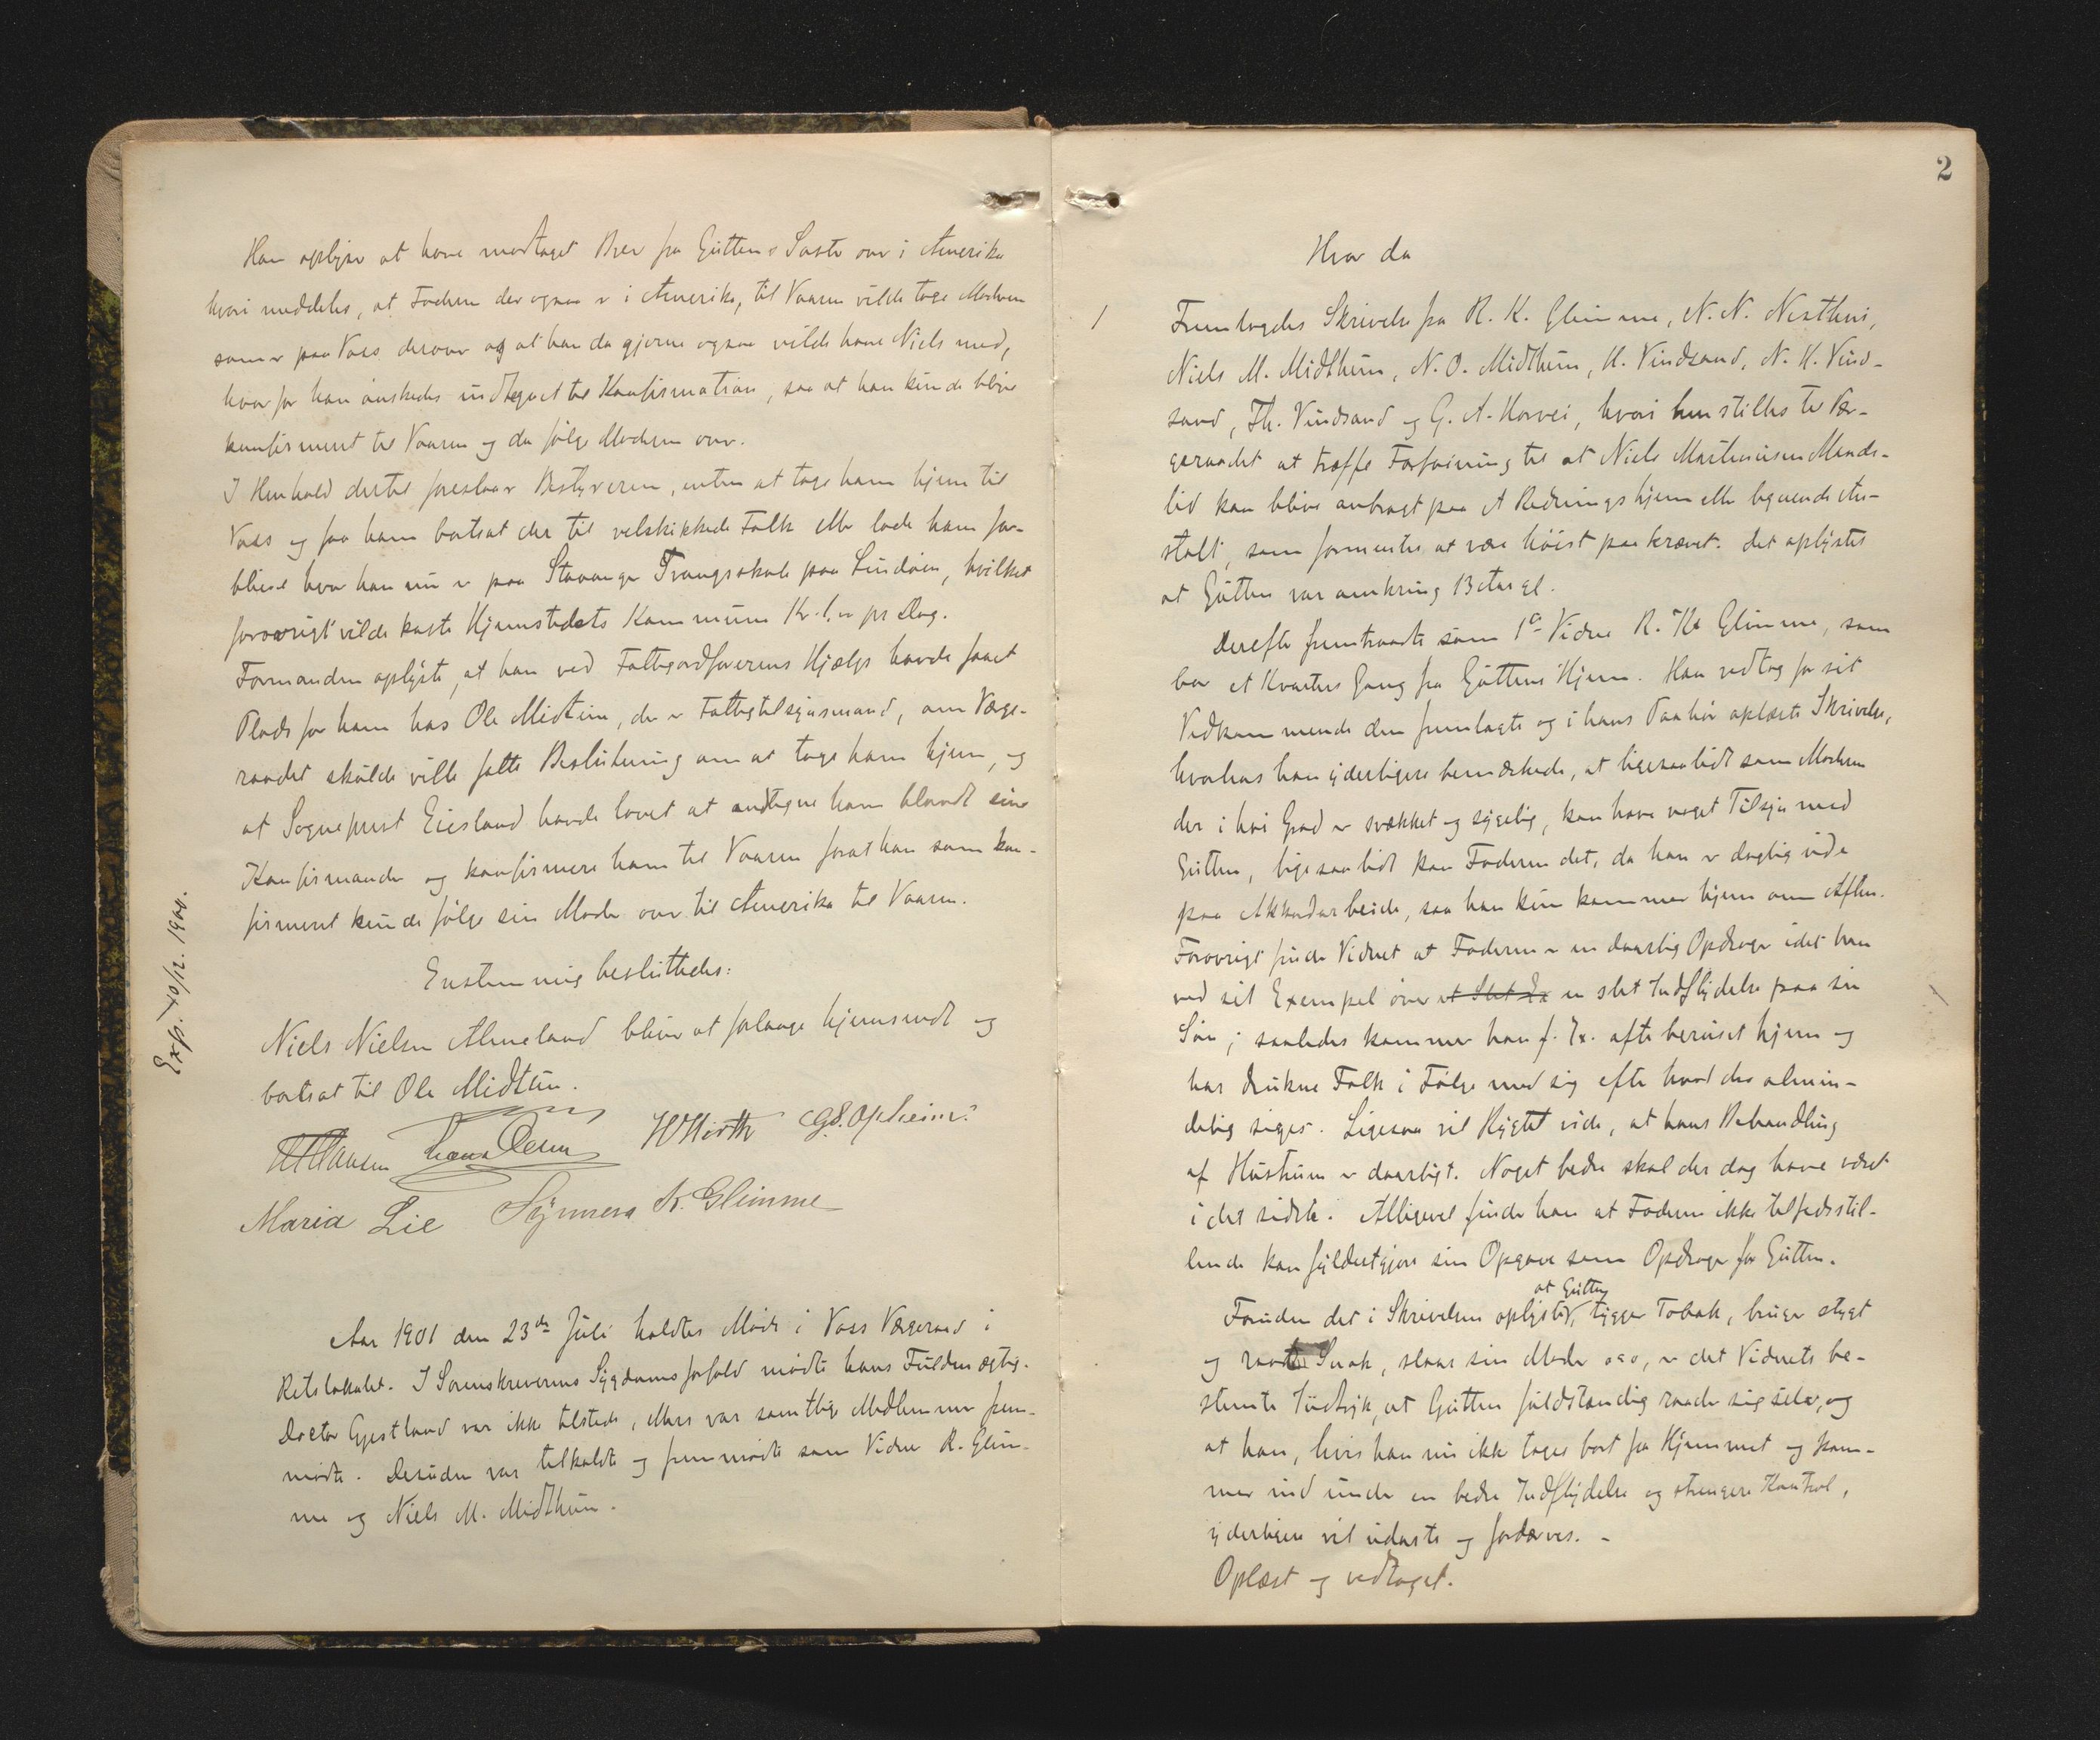 Han oplyser at have modtaget Brev fra Guttens Søster over i Amerika
hvori meddeles, at Faderen der ogsaa er i Amerika, til Vaaren vilde tage Moderen
som er paa Voss derover og at han da gjerne ogsaa vilde have Niels med,
hvorfor han ønskedes indtegnet til Konfirmation, saa at han kunde blive
konfirmeret til Vaaren og da følge Moderen over.
I Henhold dertil foreslaar Bestyreren, enten at tage ham hjem til
Voss og faa ham bortsat der til velskikkede Folk eller lade ham for-
blive hvor han nu er paa Stavanger Tvangsskole paa Lindøen, hvilket
forøvrigt vilde koste Hjemstedets Kommune Kr. 1.- pr Dag.
Formanden oplyste, at han ved Fattigordførerens Hjælp havde faaet
Plads for ham hos Ole Midtun, der er Fattigtilsynsmand, om Værge-
raadet skulde ville fatte Beslutning om at tage ham hjem, og
at Sogneprest Eiesland havde lovet at indtegne ham blandt sine
Konfirmander og konfirmere ham til Vaaren forat han som kon-
firmeret kunde følge sin Moder over til Amerika til Vaaren.
Enstemmig besluttedes:
Niels Nielsen Almeland bliver at forlange hjemsendt og
bortsat til Ole Midtun.
Exp. 10/12. 1900.
WHirth G.S. Opheim
Maria Lie Synneva K. Glimme
Aar 1901 den 23de Juli holdtes Møde i Voss Værgeraad i
Retslokalet. I Sorenskriverens Sygdomsforfald mødte hans Fuldmægtig.
Doctor Gjestland var ikke tilstede, ellers var samtlige Medlemmer frem-
mødte. Desuden var tilkaldte og fremmødte som Vidne R. Glim-
me og Niels M. Midthun.
2
Hvor da
1
Fremlagdes Skrivelse fra R. K. Glimme, N. N. Nesthus,
Niels M. Midthun, N. O. Midthun, K. Vindsand, N. K. Vind-
sand, Th. Vindsand og G. A. Horvei, hvori henstilles til Vær-
geraadet at træffe Forføining til at Niels Martinusen Mands-
lid kan blive anbragt paa et Redningshjem eller lignende An-
stalt, som formentes at være høist paakrævet. Det oplystes
at Gutten var omkring 13 Aar gl.
Derefter fremtraadte som 1ste Vidne R. K. Glimme, som
bor et Kvarters Gang fra Guttens Hjem. Han vedtog for sit
Vedkommende den fremlagte og i hans Paahør oplæste Skrivelse,
hvorhos han yderligere bemærkede, at ligesaalidt som Moderen
der i høi Grad er svækket og sygelig, kan have noget Tilsyn med
Gutten, ligesaalidt kan Faderen det, da han er daglig ude
paa Akkordarbeide, saa han kun kommer hjem om Aften.
Forøvrigt finder Vidnet at Faderen er en daarlig Opdrager idet han
ved sit Exempel øver et Slet Ex en slet Indflydelse paa sin
Søn; saaledes kommer han f. Ex. ofte beruset hjem og
har drukne Folk i Følge med sig efter hvad der almin-
delig siges. Ligesaa vil Rygtet vide, at hans Behandling
af Hustruen er daarligt. Noget bedre skal det dog have været
i det sidste. Alligevel finder han at Faderen ikke tilfredsstil-
lende kan fyldestgjøre sin Opgave som Opdrager for Gutten.
at Gutten
Foruden det i Skrivelsen oplyste, tygger Tobak, bruger stygt
og raat Snak, slaar sin Moder oso, er det Vidnets be-
stemte Indtryk, at Gutten fuldstændig raader sig selv, og
at han, hvis han nu ikke tages bort fra Hjemmet og kom-
mer ind under en bedre Indflydelse og strengere Kontrol,
yderligere vil udarte og fordærves. -
Oplæst og vedtaget.